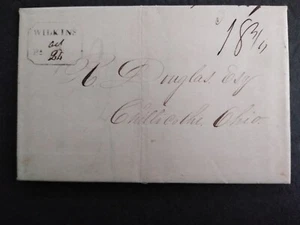 WILKINS
oct
24
18 3/4
R Douglas Esq
Chillicothe Ohio